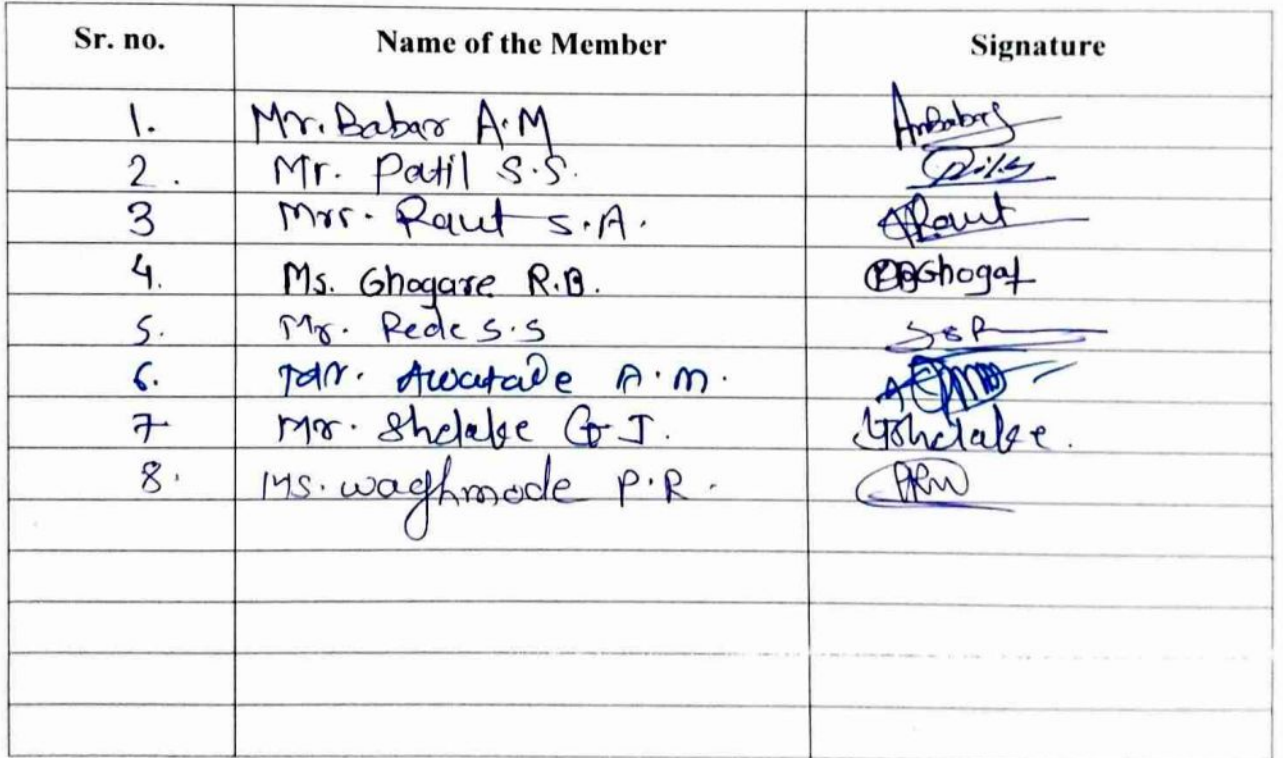 Sr. no. Name of the Member Signature
1. Mr. Babar A.M AmBabar
2. Mr. Patil S.S.
3 Mrs. Raut S.A. Raut
4. Ms. Ghogare R.B. RBGhogar
5. Mr. Rede S.S SSR
6. Mr. Awatade A.M.
7 Mr. Shelake G J. GShelake.
8. Ms. Waghmode P.R. PRW